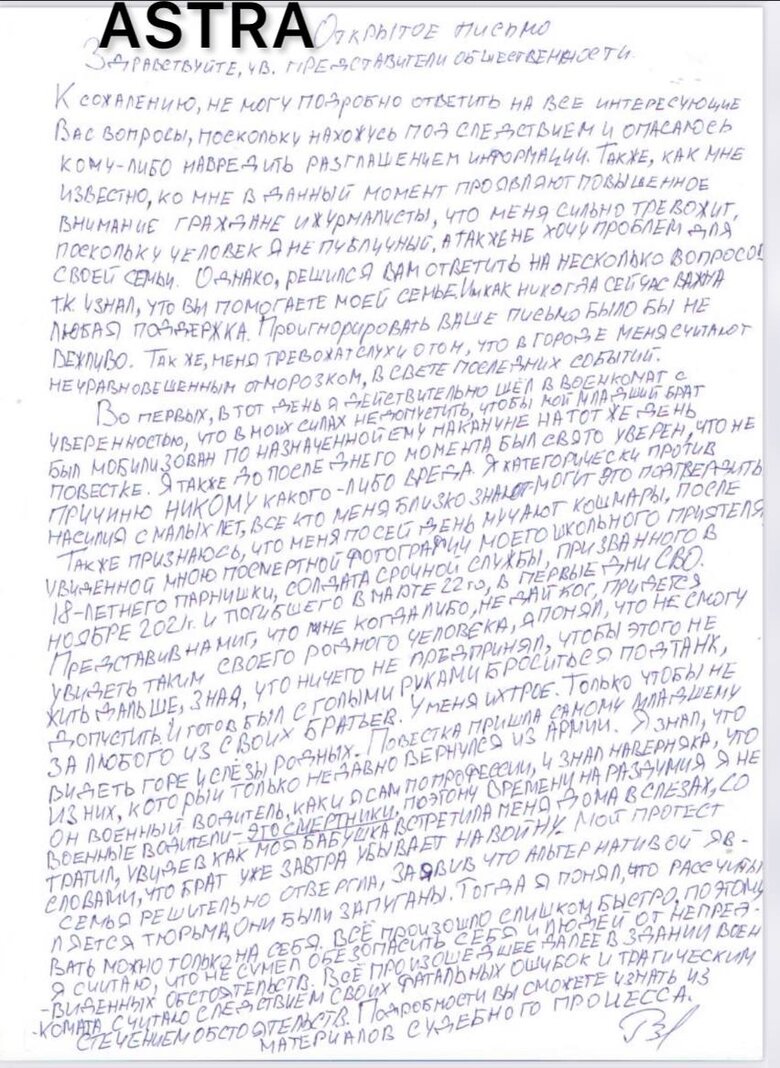 ASTRA
Открытое письмо
Здравствуйте, ув. представители общественности.
К сожалению, не могу подробно ответить на все интересующие
Вас вопросы, поскольку нахожусь под следствием и опасаюсь
кому-либо навредить разглашением информации. Также, как мне
известно, ко мне в данный момент проявляют повышенное
внимание граждане и журналисты, что меня сильно тревожит,
поскольку человек я не публичный, а также не хочу проблем для
своей семьи. Однако, решился вам ответить на несколько вопросов
т.к. узнал, что вы помогаете моей семье. Им как никогда сейчас важна
любая поддержка. Проигнорировать ваше письмо было бы не
вежливо. Так же, меня тревожат слухи о том, что в городе меня считают
неуравновешенным отморозком, в свете последних событий.
Во первых, в тот день я действительно шёл в военкомат с
уверенностью, что в моих силах недопустить, чтобы мой младший брат
был мобилизован по назначенной ему накануне на тот же день
повестке. Я также до последнего момента был свято уверен, что не
причиню никому какого-либо вреда. Я категорически против
насилия с малых лет, все кто меня близко знают могут это подтвердить
Также признаюсь, что меня по сей день мучают кошмары, после
увиденной мною посмертной фотографии моего школьного приятеля
18-летнего парнишки, солдата срочной службы, призванного в
ноябре 2021г. и погибшего в марте 22го, в первые дни СВО.
Представив на миг, что мне когда либо, не дай бог, придется
увидеть таким своего родного человека, я понял, что не смогу
жить дальше, зная, что ничего не предпринял, чтобы этого не
допустить. И готов был с голыми руками броситься под танк,
за любого из своих братьев. У меня их трое. Только чтобы не
видеть горе и слёзы родных. Повестка пришла самому младшему
из них, который только недавно вернулся из армии. Я знал, что
он военный водитель, как и я сам по профессии, и знал наверняка, что
военные водители - это смертники, поэтому времени на раздумия я не
тратил, увидев как моя бабушка встретила меня дома в слезах, со
словами, что брат уже завтра убывает на войну. Мой протест
семья решительно отвергла, заявив что альтернативой яв-
ляется тюрьма, они были запуганы. Тогда я понял, что рассчиты
вать можно только на себя. Всё произошло слишком быстро, поэтому
я считаю, что не сумел обезопасить себя и людей от непред-
-виденных обстоятельств. Всё произошедшее далее в здании воен
-комата считаю следствием своих фатальных ошибок и трагическим
стечением обстоятельств. Подробности вы сможете узнать из
материалов судебного процесса.